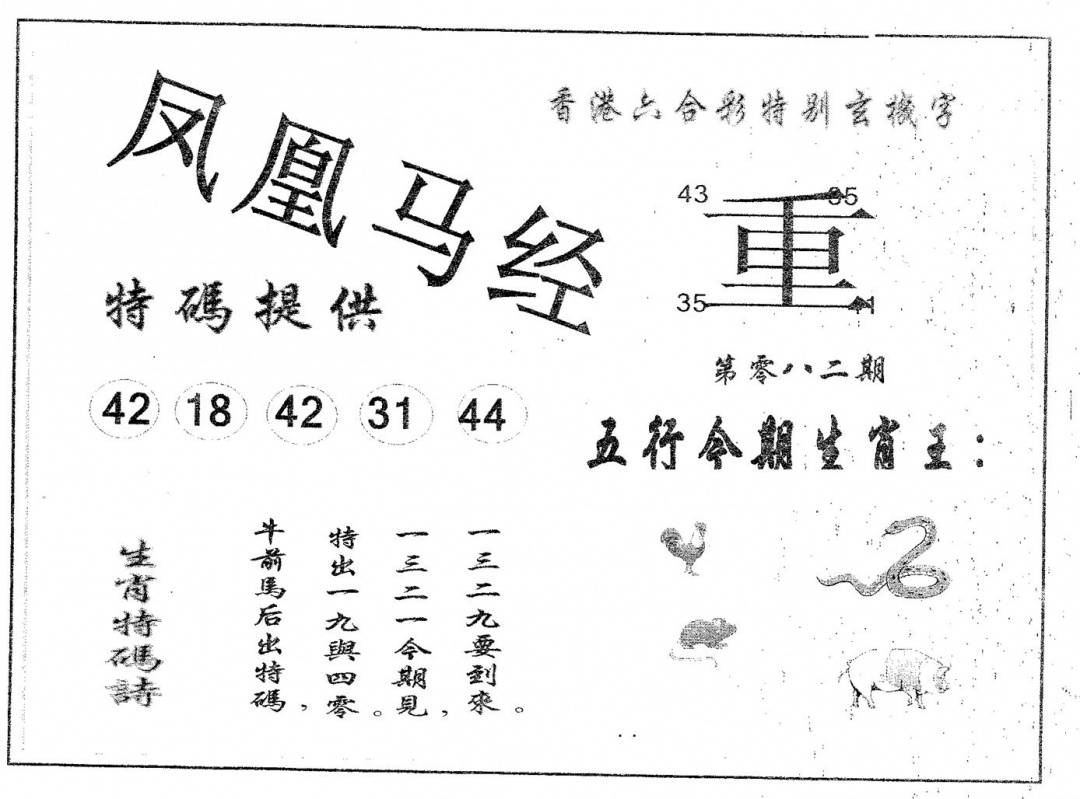 凤凰马经
香港六合彩特别玄機字
43
35
重
35
41
特碼提供
42 18 42 31 44
第零八二期
五行今期生肖王：
生肖特碼詩
牛前馬后出特碼，
特出一九與四零。
一三二一今期見，
一三二九要到來。